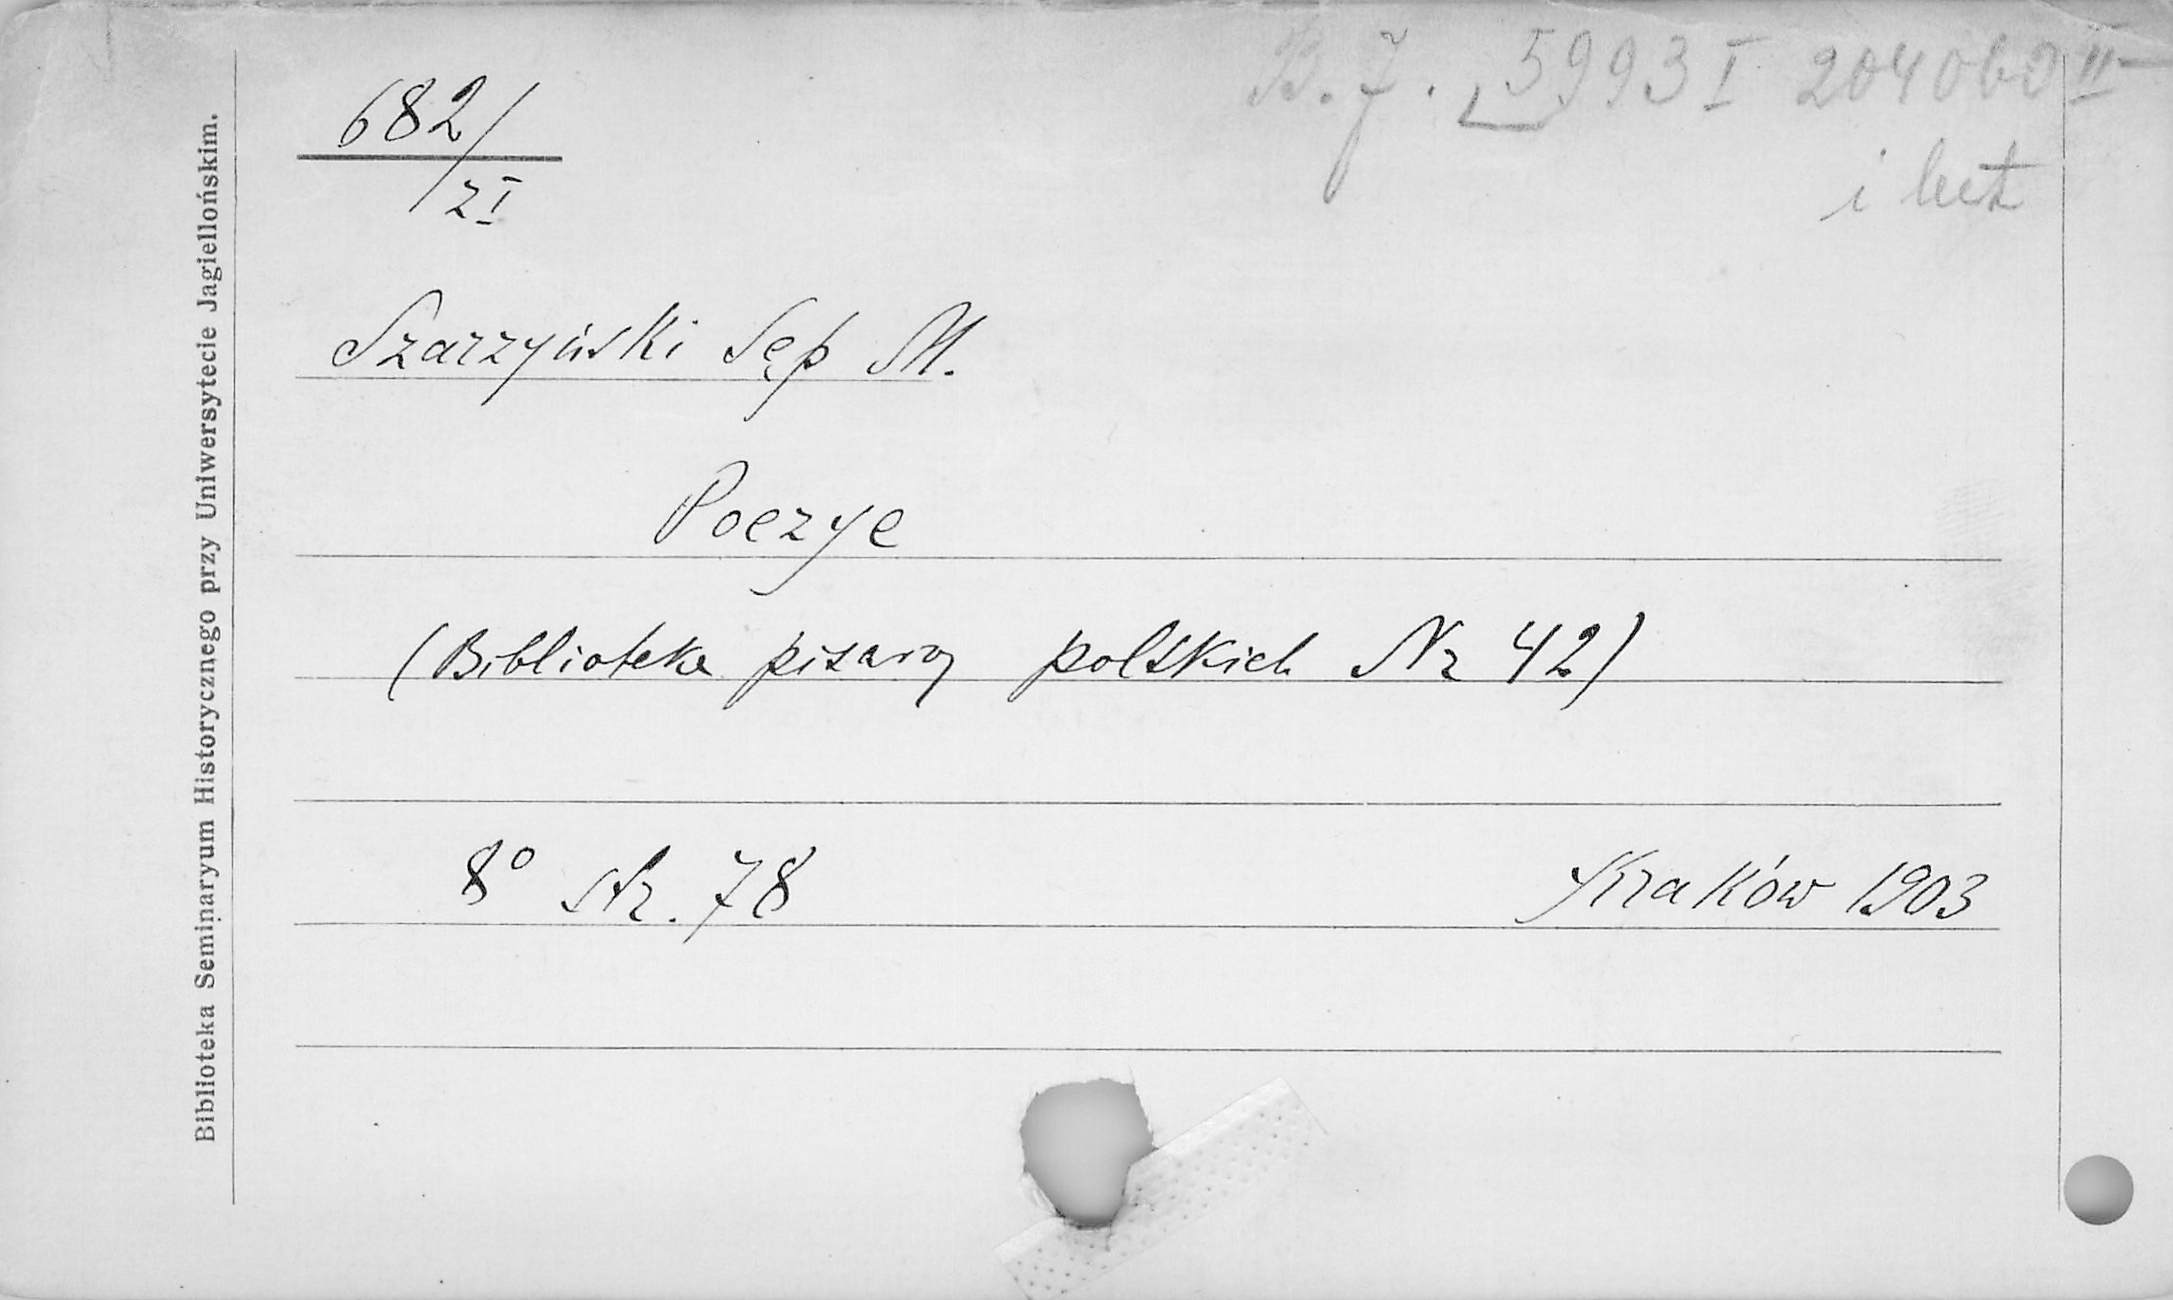 B.J. 5993 I 204060 III
i lect
682/
zI
Szarzyński Sęp M.
Poezye
(Biblioteka pisarzy polskich Nr 42)
8° str. 78 Kraków 1903
Biblioteka Seminaryum Historycznego przy Uniwersytecie Jagiellońskim.